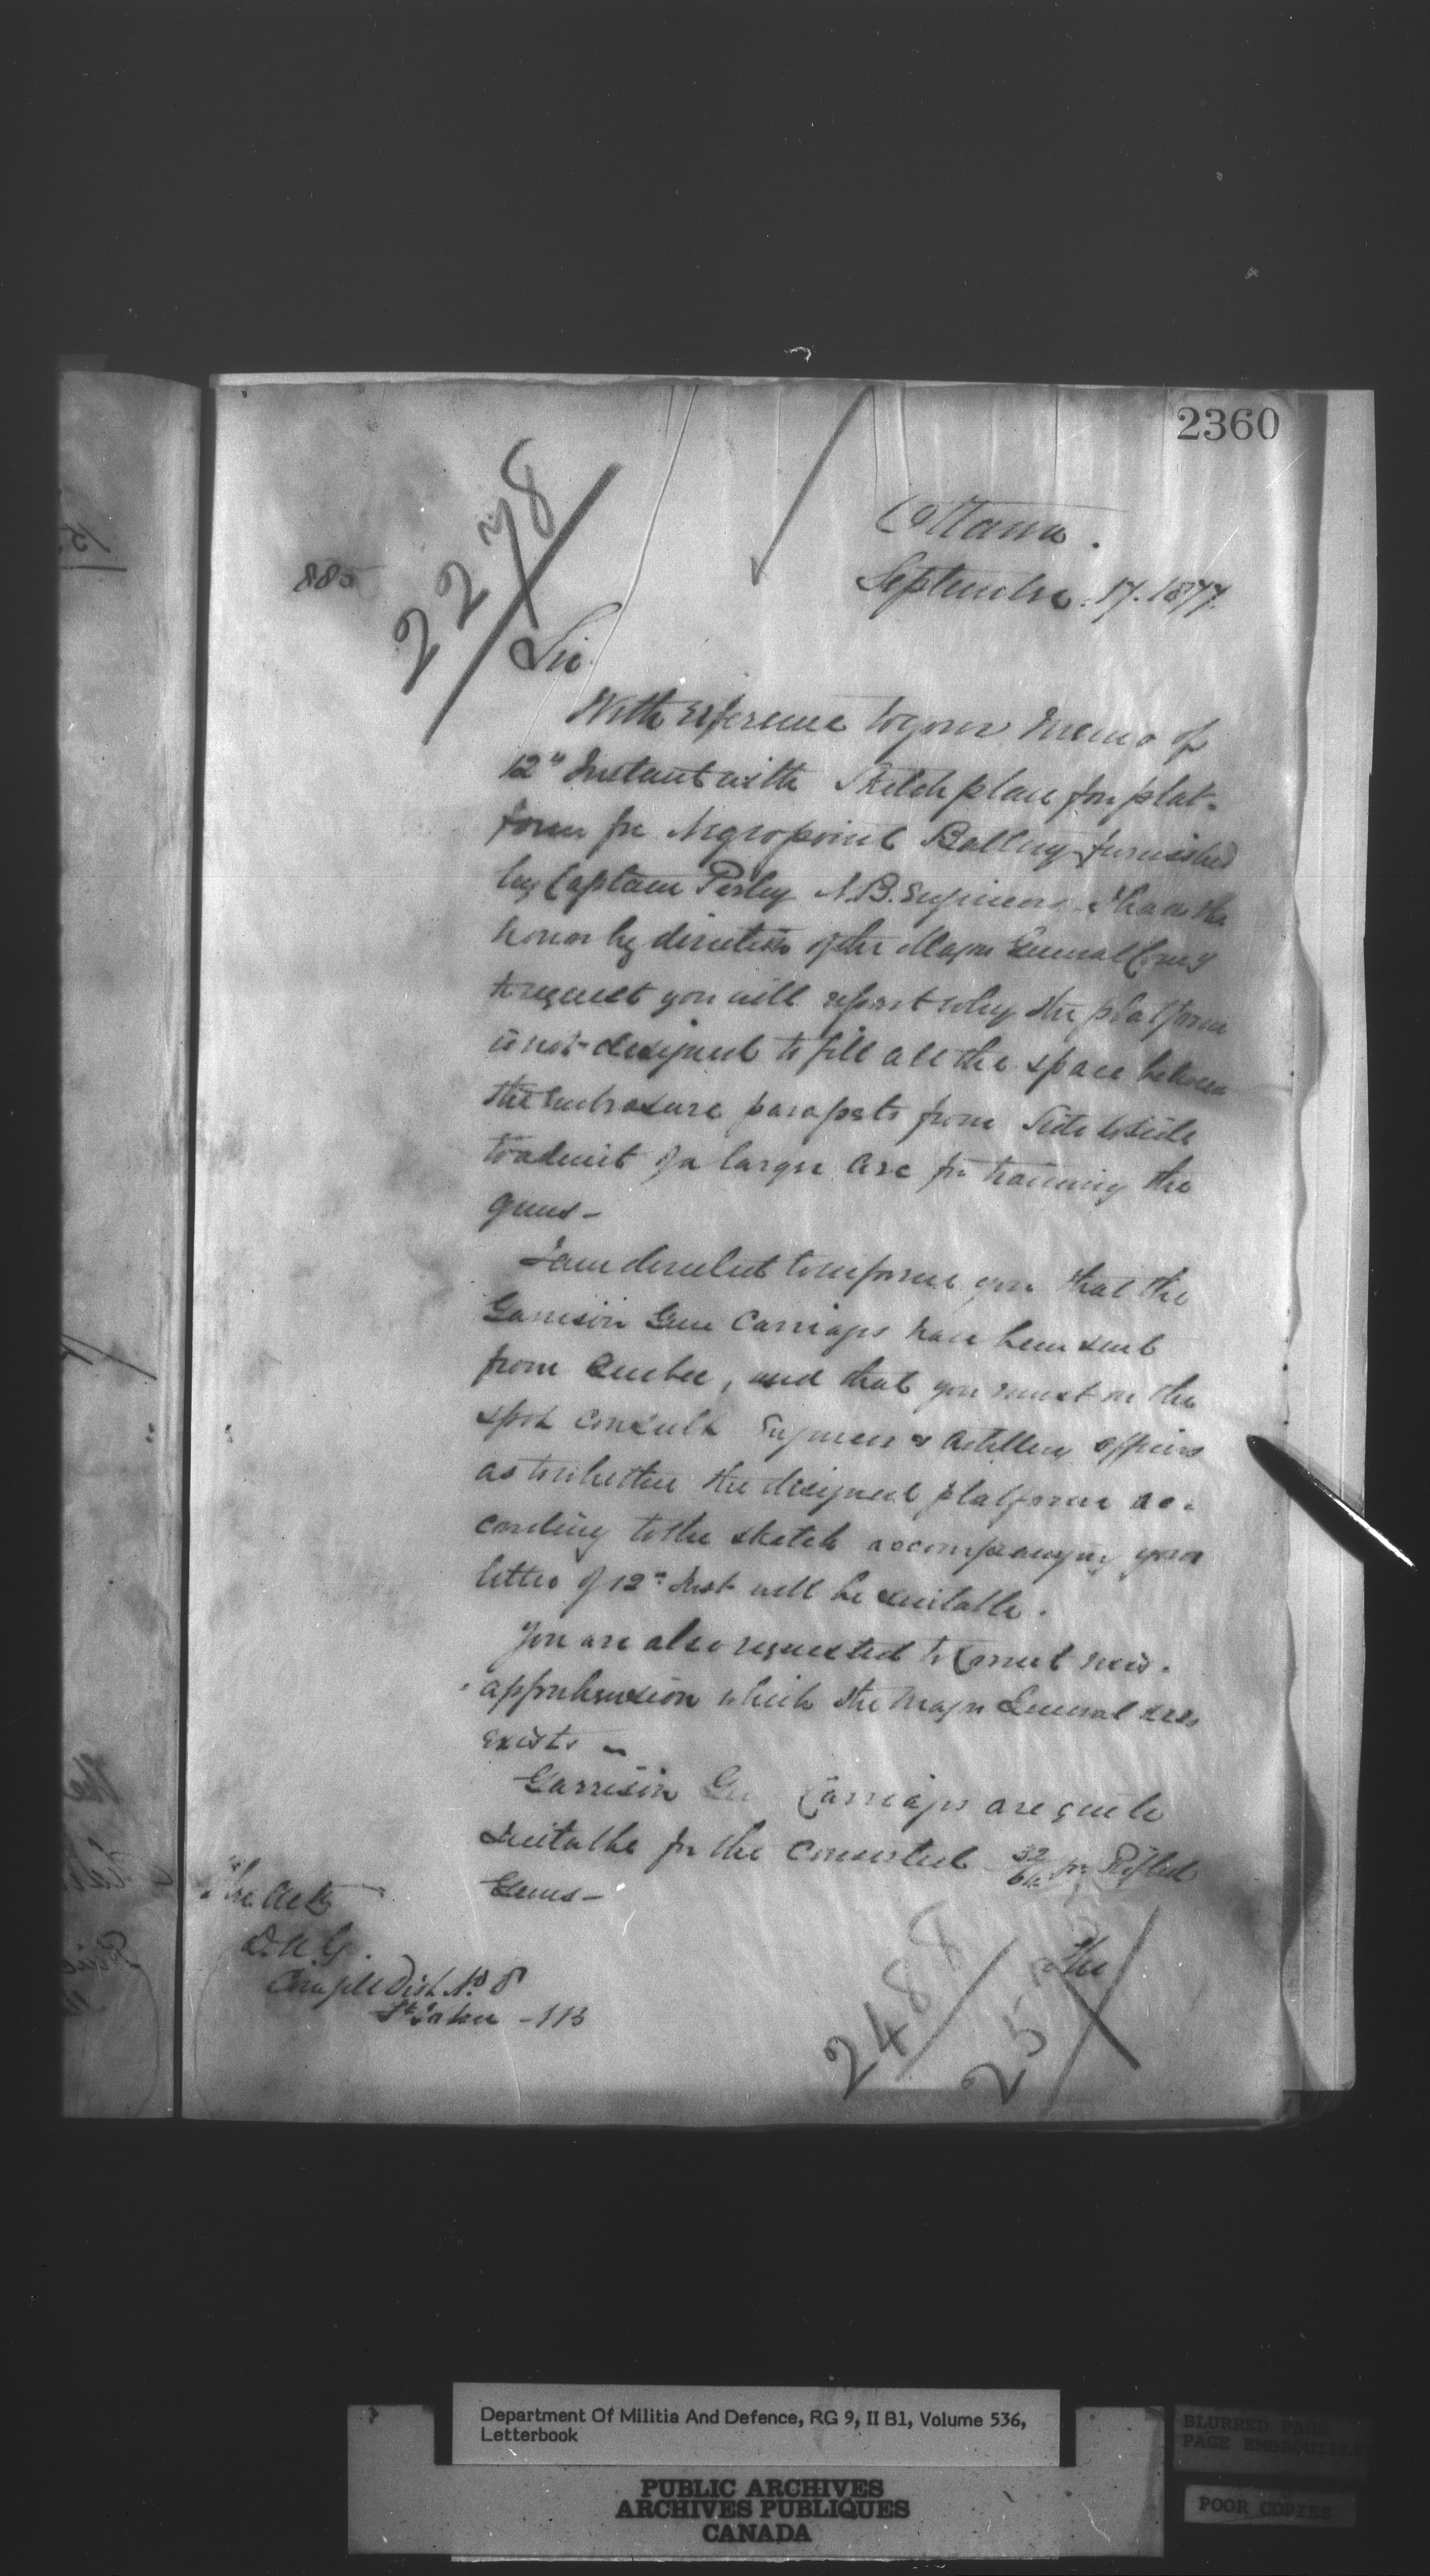 2360
2278
885
Ottawa.
September. 17. 1877.
Sir
With reference to your Memo of
12th Instant with Sketch plan for plat-
form for Negropoint Battery furnished
by Captain Perley N.B. Engineers. I have the
honor by direction of the Major General Comg
to request you will report why the platform
is not designed to fill all the space between
the embrasure parapets from side to side
to admit of a larger arc for training the
guns -
I am directed to inform you that the
Garrison Gun Carriages have been sent
from Quebec, and that you must on the
spot consult Engineer & Artillery Officers
as to whether the designed platform ac-
cording to the sketch accompanying your
letter of 12th Inst will be suitable.
You are also requested to correct mis-
apprehension which the Major General sees
exists -
Garrison Gun Carriages are quite
suitable for the converted 32/64 pr Rifled
Guns -
The Actg
D.A.G.
Comg Mil Dist No 8
St John - NB
The
2488
25
Department Of Militia And Defence, RG 9, II B1, Volume 536,
Letterbook
PUBLIC ARCHIVES
ARCHIVES PUBLIQUES
CANADA
BLURRED PAGE
PAGE EMBROUILLE
POOR COPIES